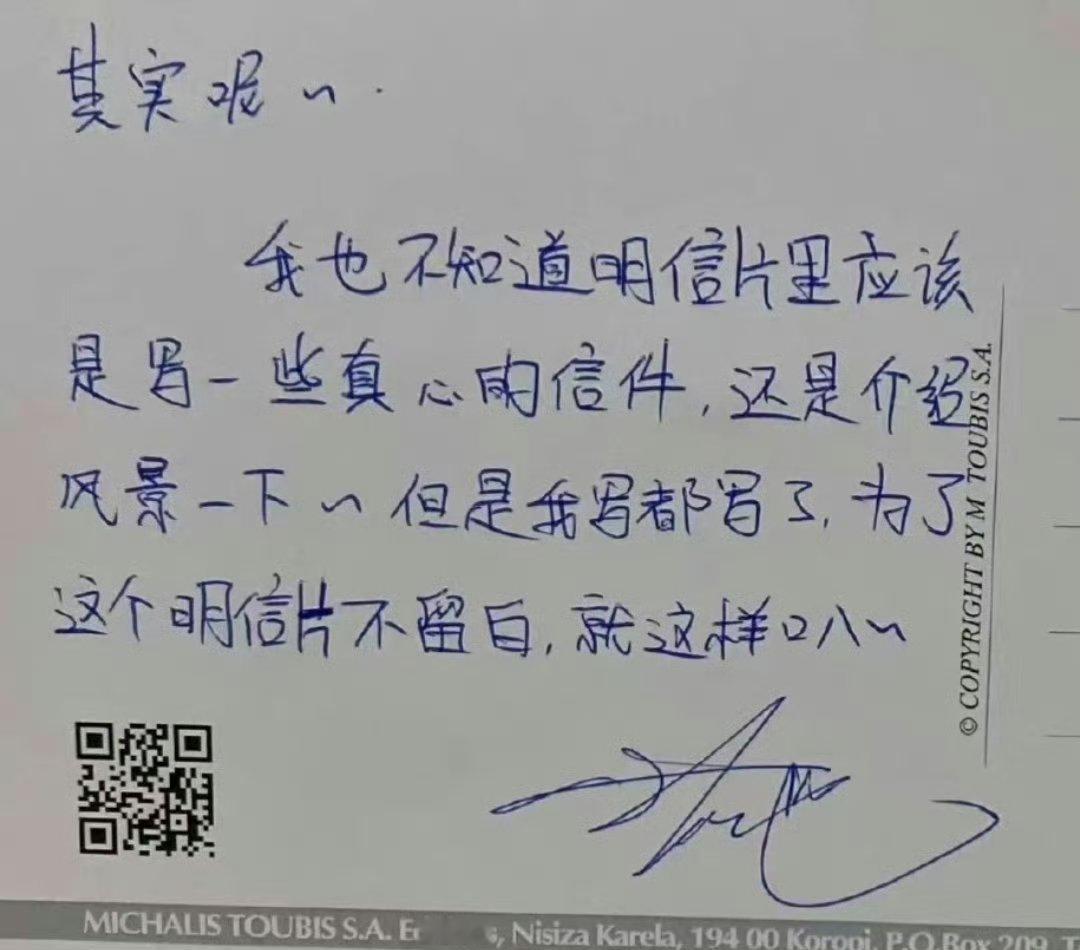 其实呢~.
我也不知道明信片里应该
是写一些真心的信件,还是介绍
风景一下~但是我写都写了,为了
这个明信片不留白,就这样口八~
© COPYRIGHT BY M TOUBIS S.A.
MICHALIS TOUBIS S.A. , Nisiza Karela, 194 00 Koropi, P.O.Box